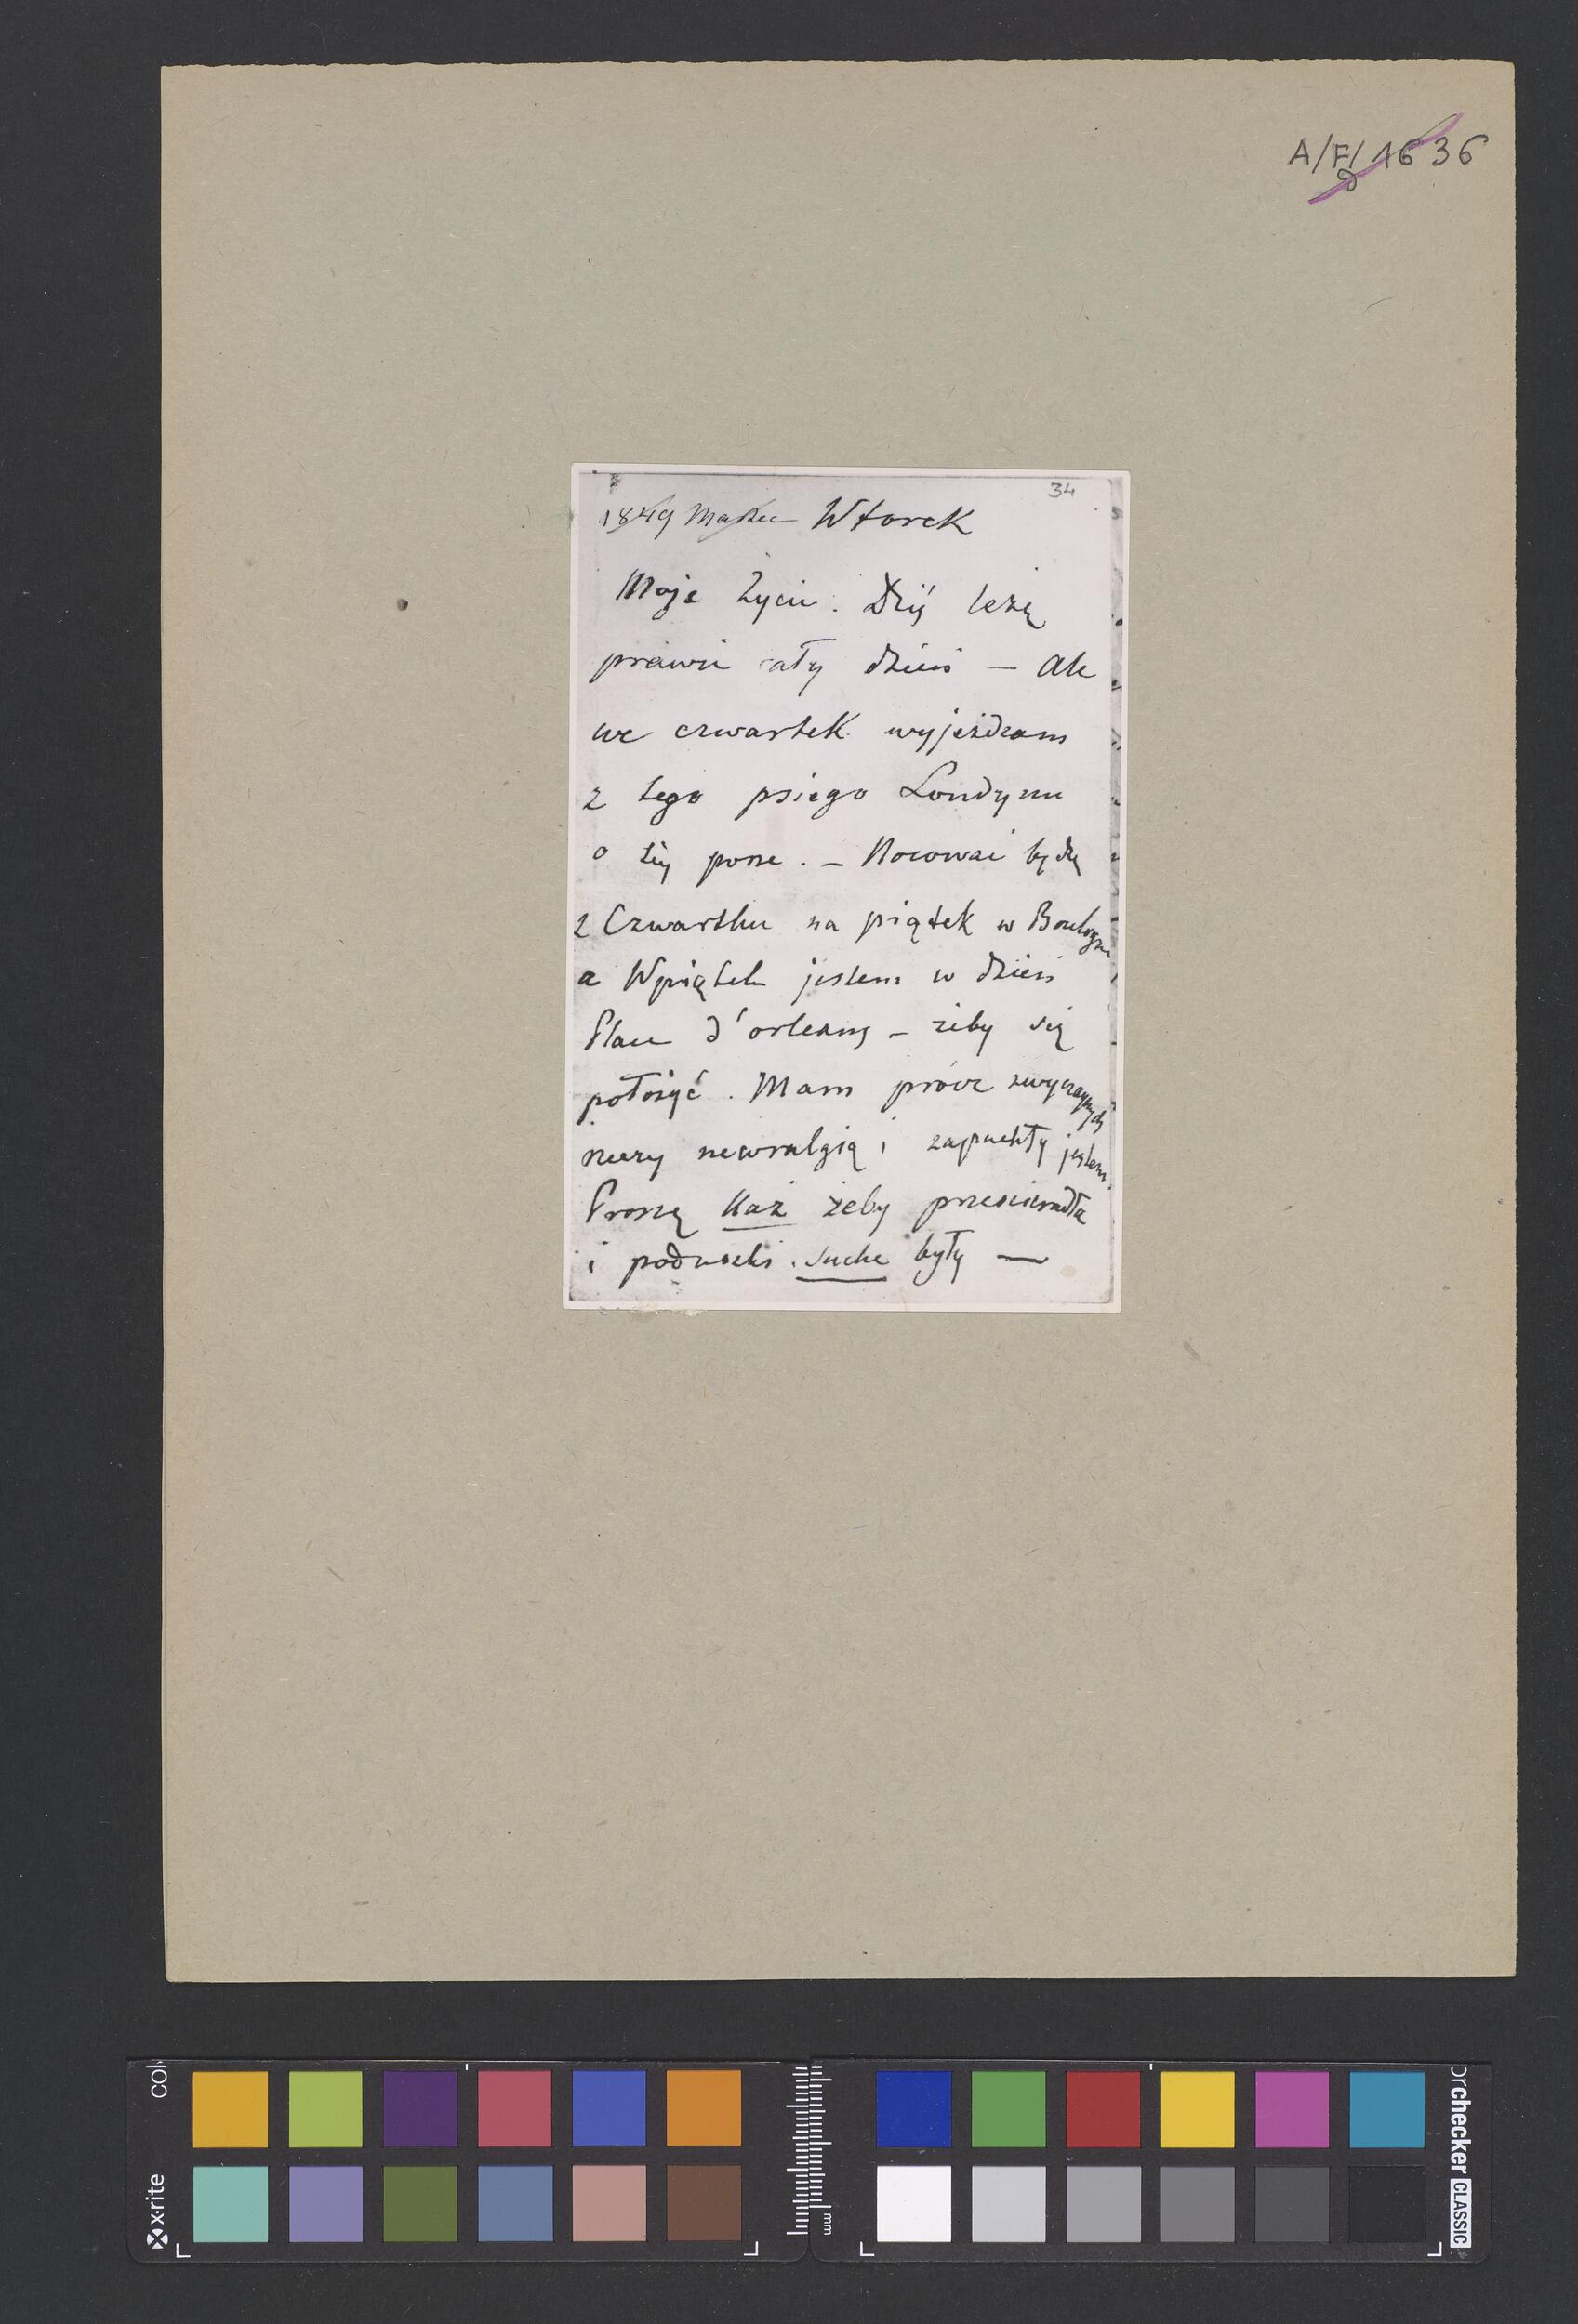 A/F/1636
34
1849 Marzec Wtorek
Moje Życie. Dziś leżę
prawie cały dzień — ale
we czwartek wyjeżdzam
z tego psiego Londynu
o tej porze. — Nocować będę
z Czwartku na piątek w Boulogne
a W piątek jestem w dzień
Place d'orleans — żeby się
położyć. Mam prócz zwyczajnych
rzeczy newralgią i zapuchły jestem.
Proszę Każ żeby prześcieradła
i poduszki suche były —
x·rite
col
mm
orchecker CLASSIC